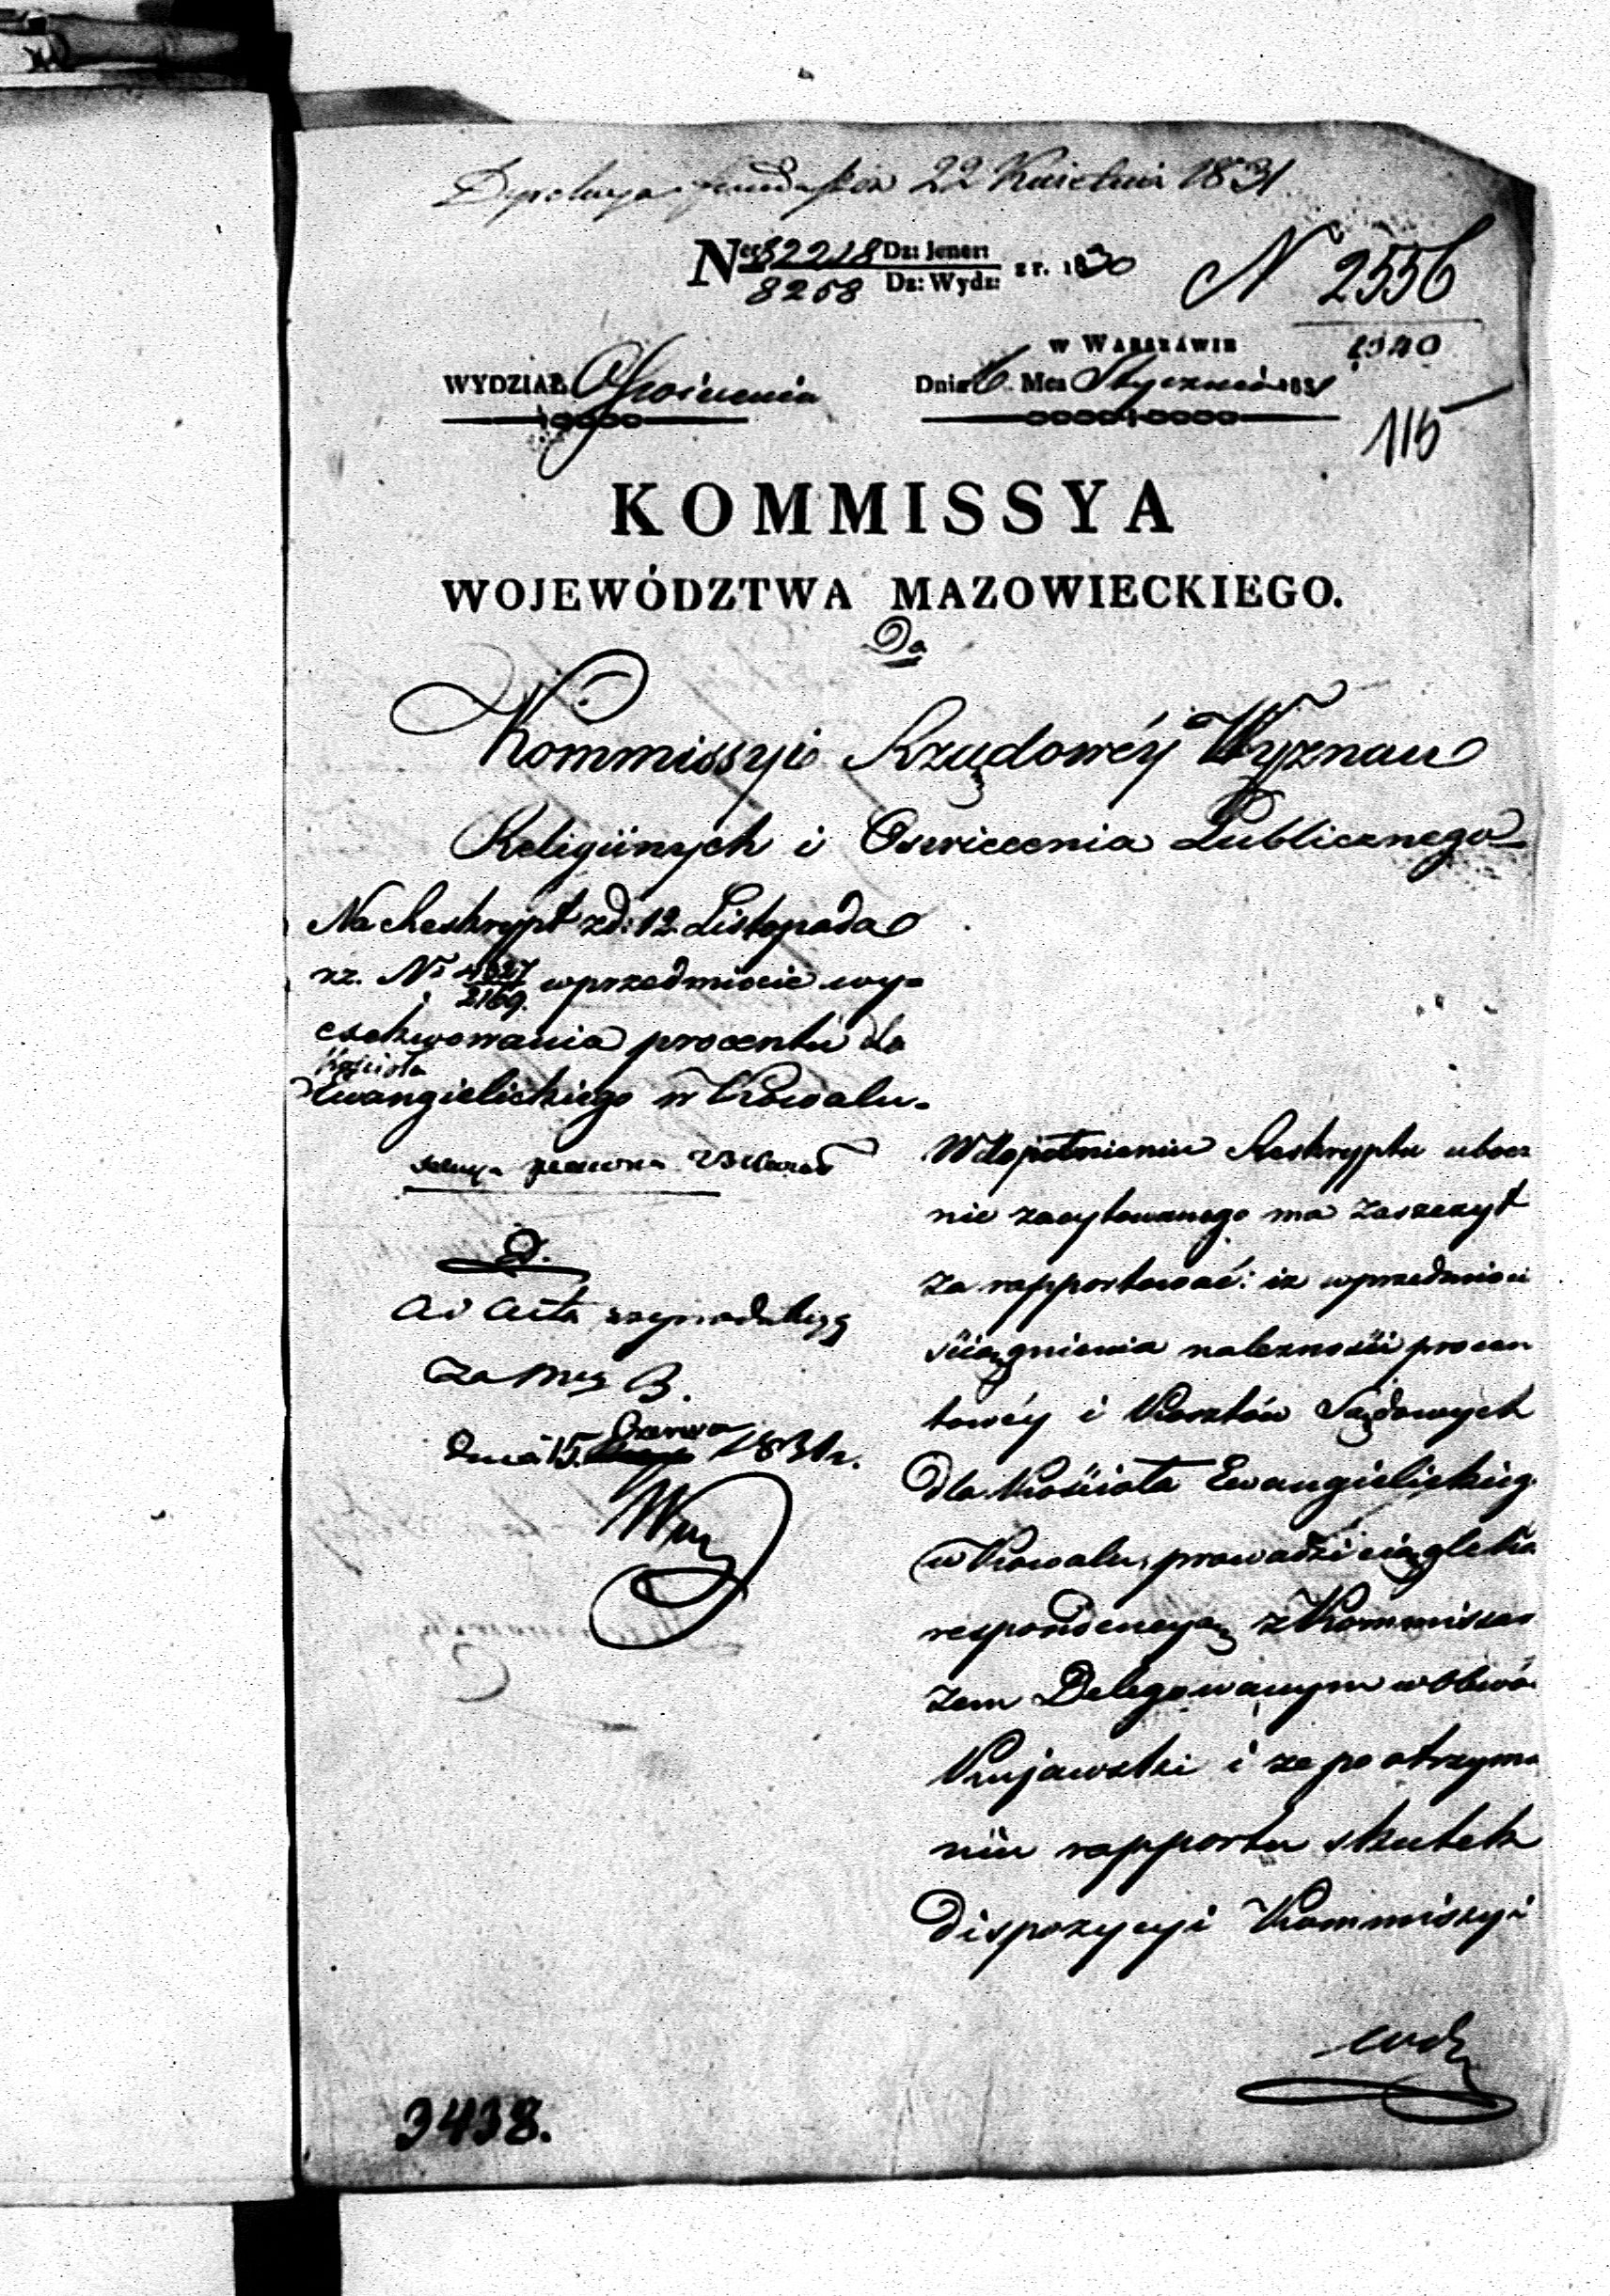 22 Kwietnia 1831
Nro 82218 Dz: Jener: z r. 1830
8268 Dz: Wydz:
N 2556
1340
w Warszawie
WYDZIAŁ Oświecenia
Dnia 6. Mca Stycznia 1831
115
KOMMISSYA
WOJEWÓDZTWA MAZOWIECKIEGO.
Do
Kommissyi Rządowéy Wyznań
Religiinych i Oswiecenia Publicznego
Na Reskrypt z d: 12 Listopada
rz. No 4327 w przedmiocie wy=
2169.
exekwowania procentu dla
Kościoła
Ewangielickiego w Kowalu.
ad acta
Za Mcy B.
dnia 15. Czerwca 1831 r.
W dopełnieniu Reskryptu ubocz
nie zacytowanego ma zaszczyt
zarapportować: iz w przedmioci
ściągnienia należności procen
towéy i Kosztów Sądowych
dla Kościoła Ewangielickieg
w Kowalu, prowadzi ciągle ko
respondencyą z Kommissar
zem Delegowanym w Obwó
Kujawski i ze po otrzyma
niu rapportu skutek
dispozycyi Kommissyi
3438.